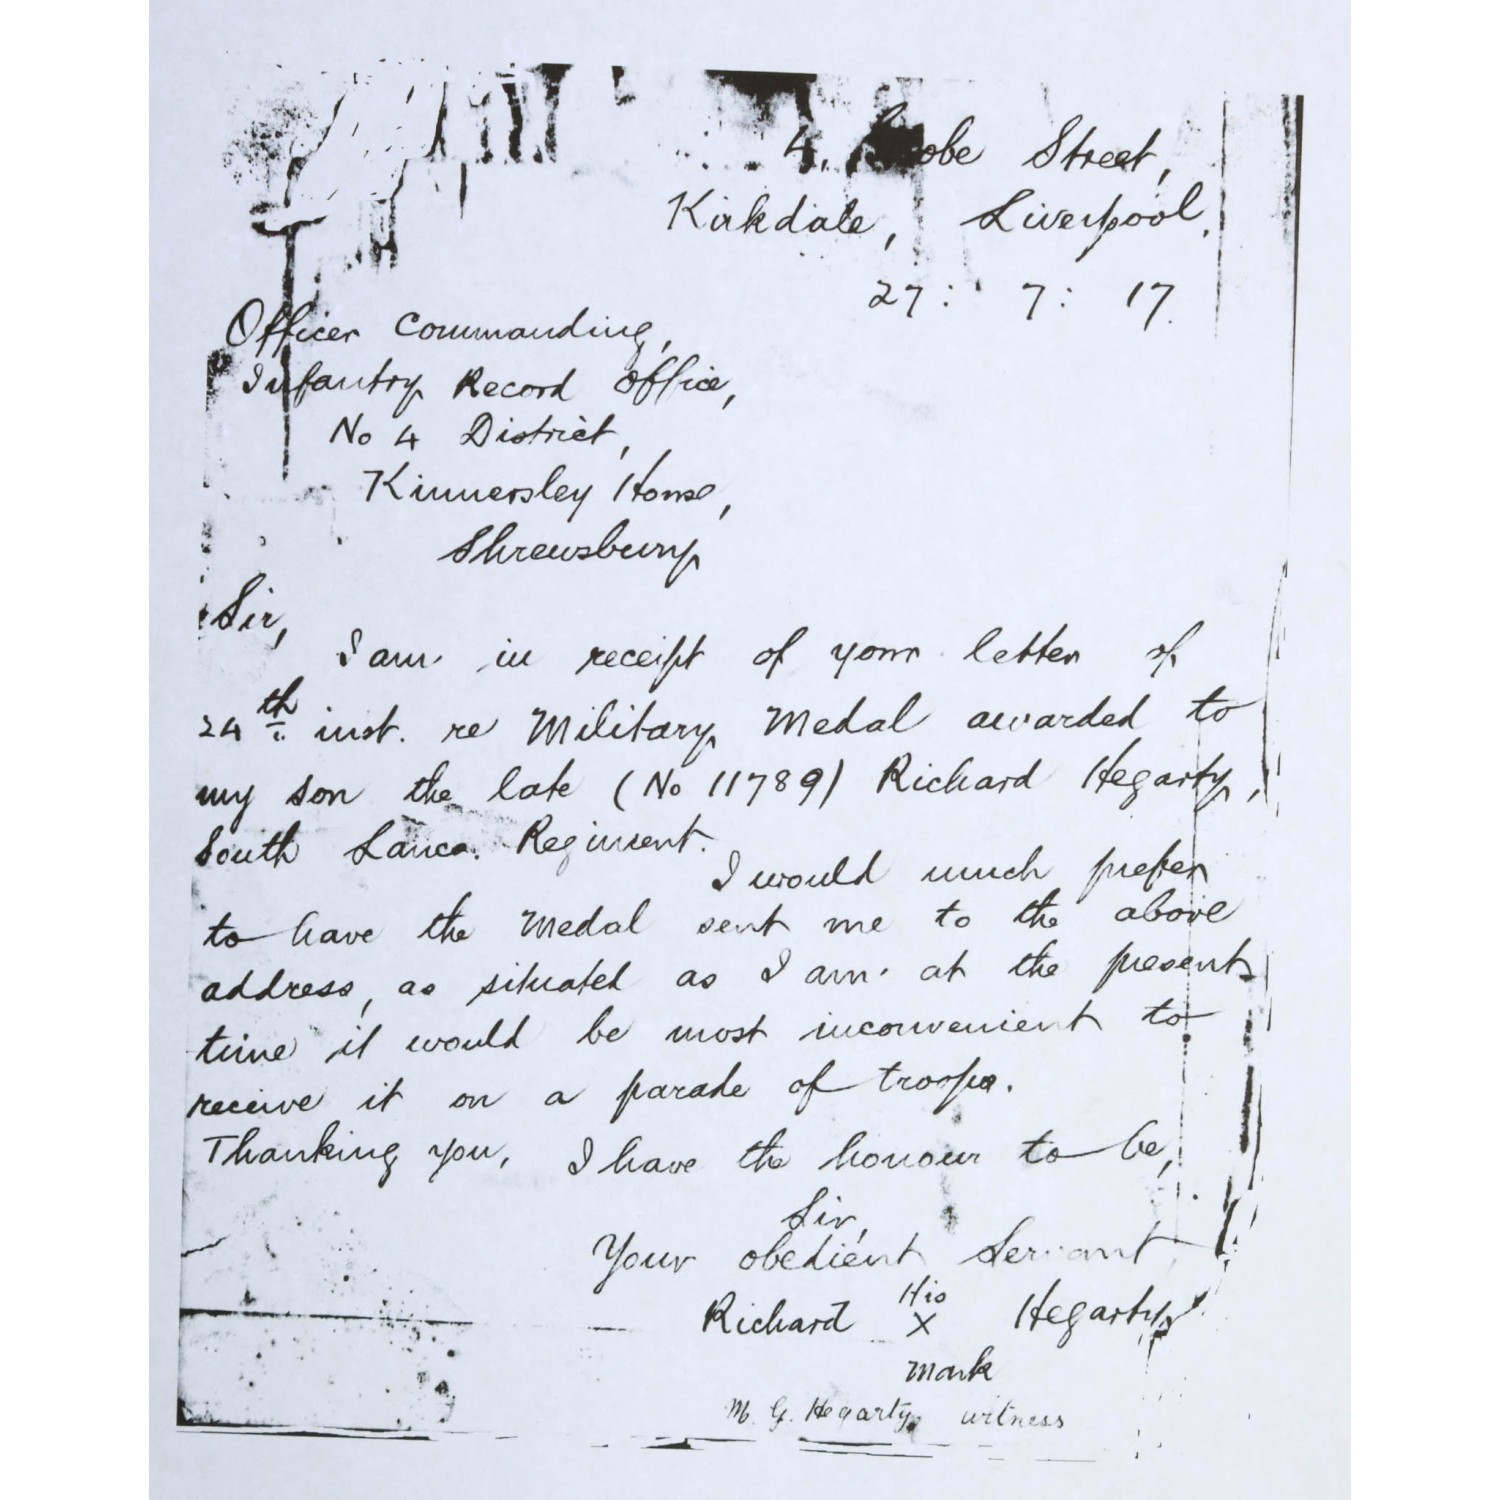 4, Street,
Kirkdale, Liverpool.
27: 7: 17.
Officer Commanding,
Infantry Record Office,
No 4 District,
Kinnersley House,
Shrewsbury
Sir,
I am in receipt of your letter of
24th inst. re Military Medal awarded to
my son the late (No 11789) Richard Hegarty,
South Lancs. Regiment.
I would much prefer
to have the Medal sent me to the above
address, as situated as I am at the present
time it would be most inconvenient to
receive it on a parade of troops.
Thanking you, I have the honour to be,
Sir,
Your obedient Servant
His
Richard X Hegarty
Mark
M. G. Hegarty, witness